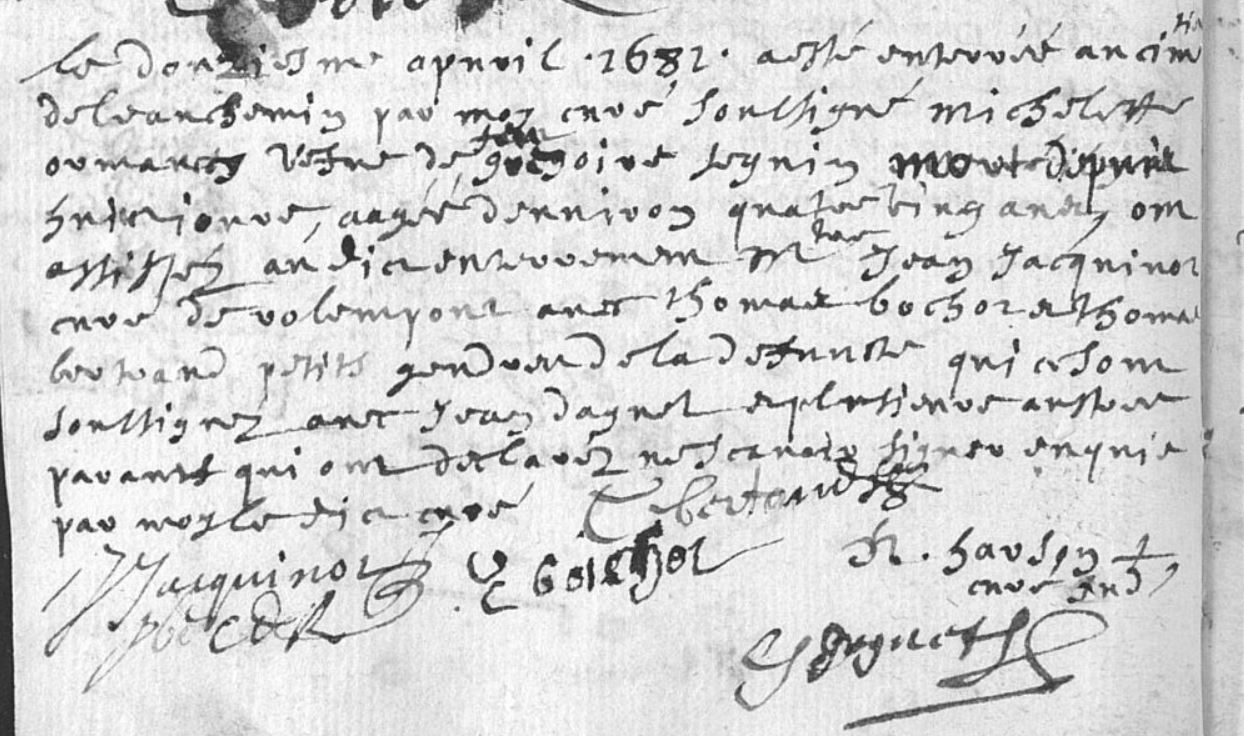 tie
le douziesme apvril .1681. a esté enterréé au cim
de leauchemin par moy curé soubsigné Michelette
vefve de feu gregoire seguin morte depuis
huict jours, aagéé denviron quatre vingt ans, ont
assistez au dict enterrement Mre Jean Jacquinot
curé de volempont avec thomas bochot et thomas
bertrand petits gendres de la defuncte qui ce sont
soubsignez avec Jean daguet et plusieurs aultres
parants qui ont declarez ne scavoir signer enquis
par moy le dict curé T bertrand
J Jacquinot T boichot R. harson
curé
J daguet